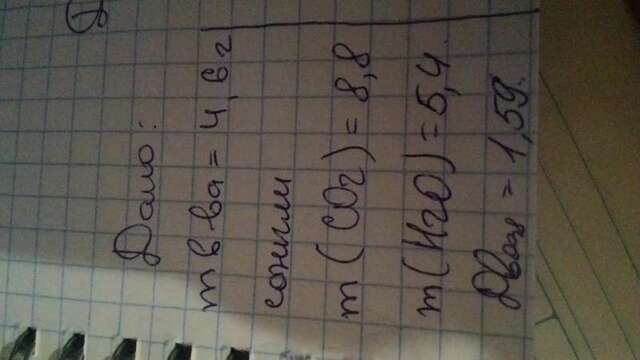 Дано:
m в ва = 4,6 г
сожгли
m (CO2) = 8,8
m (H2O) = 5,4
Dвозд = 1,59.